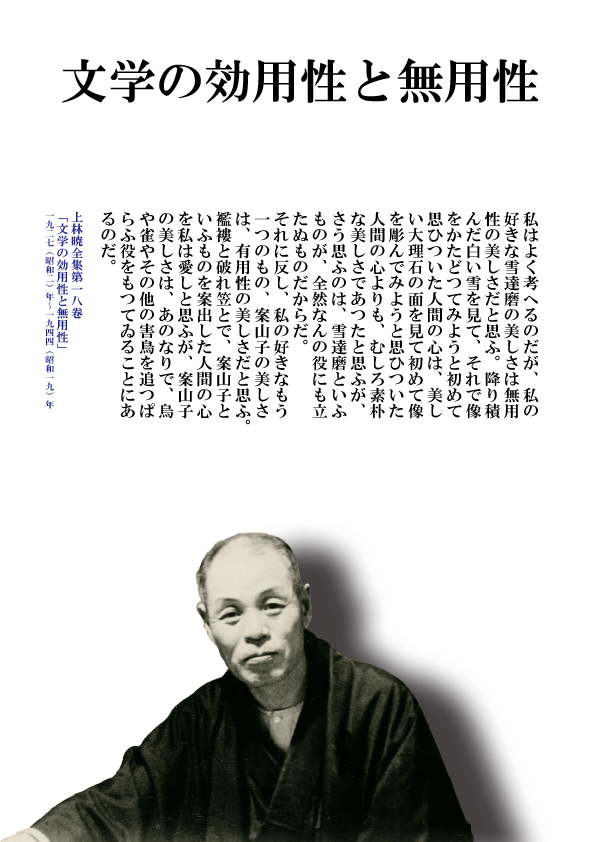 文学の効用性と無用性
私はよく考へるのだが、私の
好きな雪達磨の美しさは無用
性の美しさだと思ふ。降り積
んだ白い雪を見て、それで像
をかたどつてみようと初めて
思ひついた人間の心は、美し
い大理石の面を見て初めて像
を彫んでみようと思ひついた
人間の心よりも、むしろ素朴
な美しさであつたと思ふが、
さう思ふのは、雪達磨といふ
ものが、全然なんの役にも立
たぬものだからだ。
それに反し、私の好きなもう
一つのもの、案山子の美しさ
は、有用性の美しさだと思ふ。
襤褸と破れ笠とで、案山子と
いふものを案出した人間の心
を私は愛しと思ふが、案山子
の美しさは、あのなりで、烏
や雀やその他の害鳥を追つぱ
らふ役をもつてゐることにあ
るのだ。
上林暁全集第一八巻
「文学の効用性と無用性」
一九二七（昭和二）年～一九四四（昭和一九）年